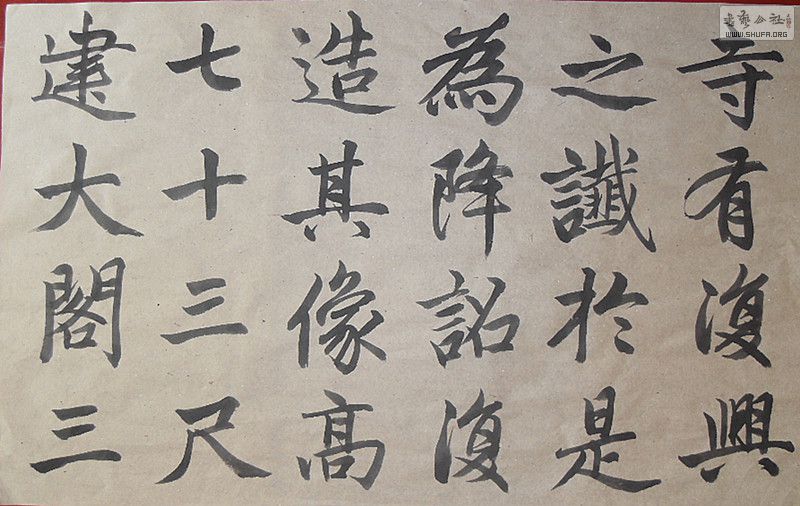 寺有復興
之讖於是
為降詔復
造其像高
七十三尺
建大閣三
书艺公社
WWW.SHUFA.ORG